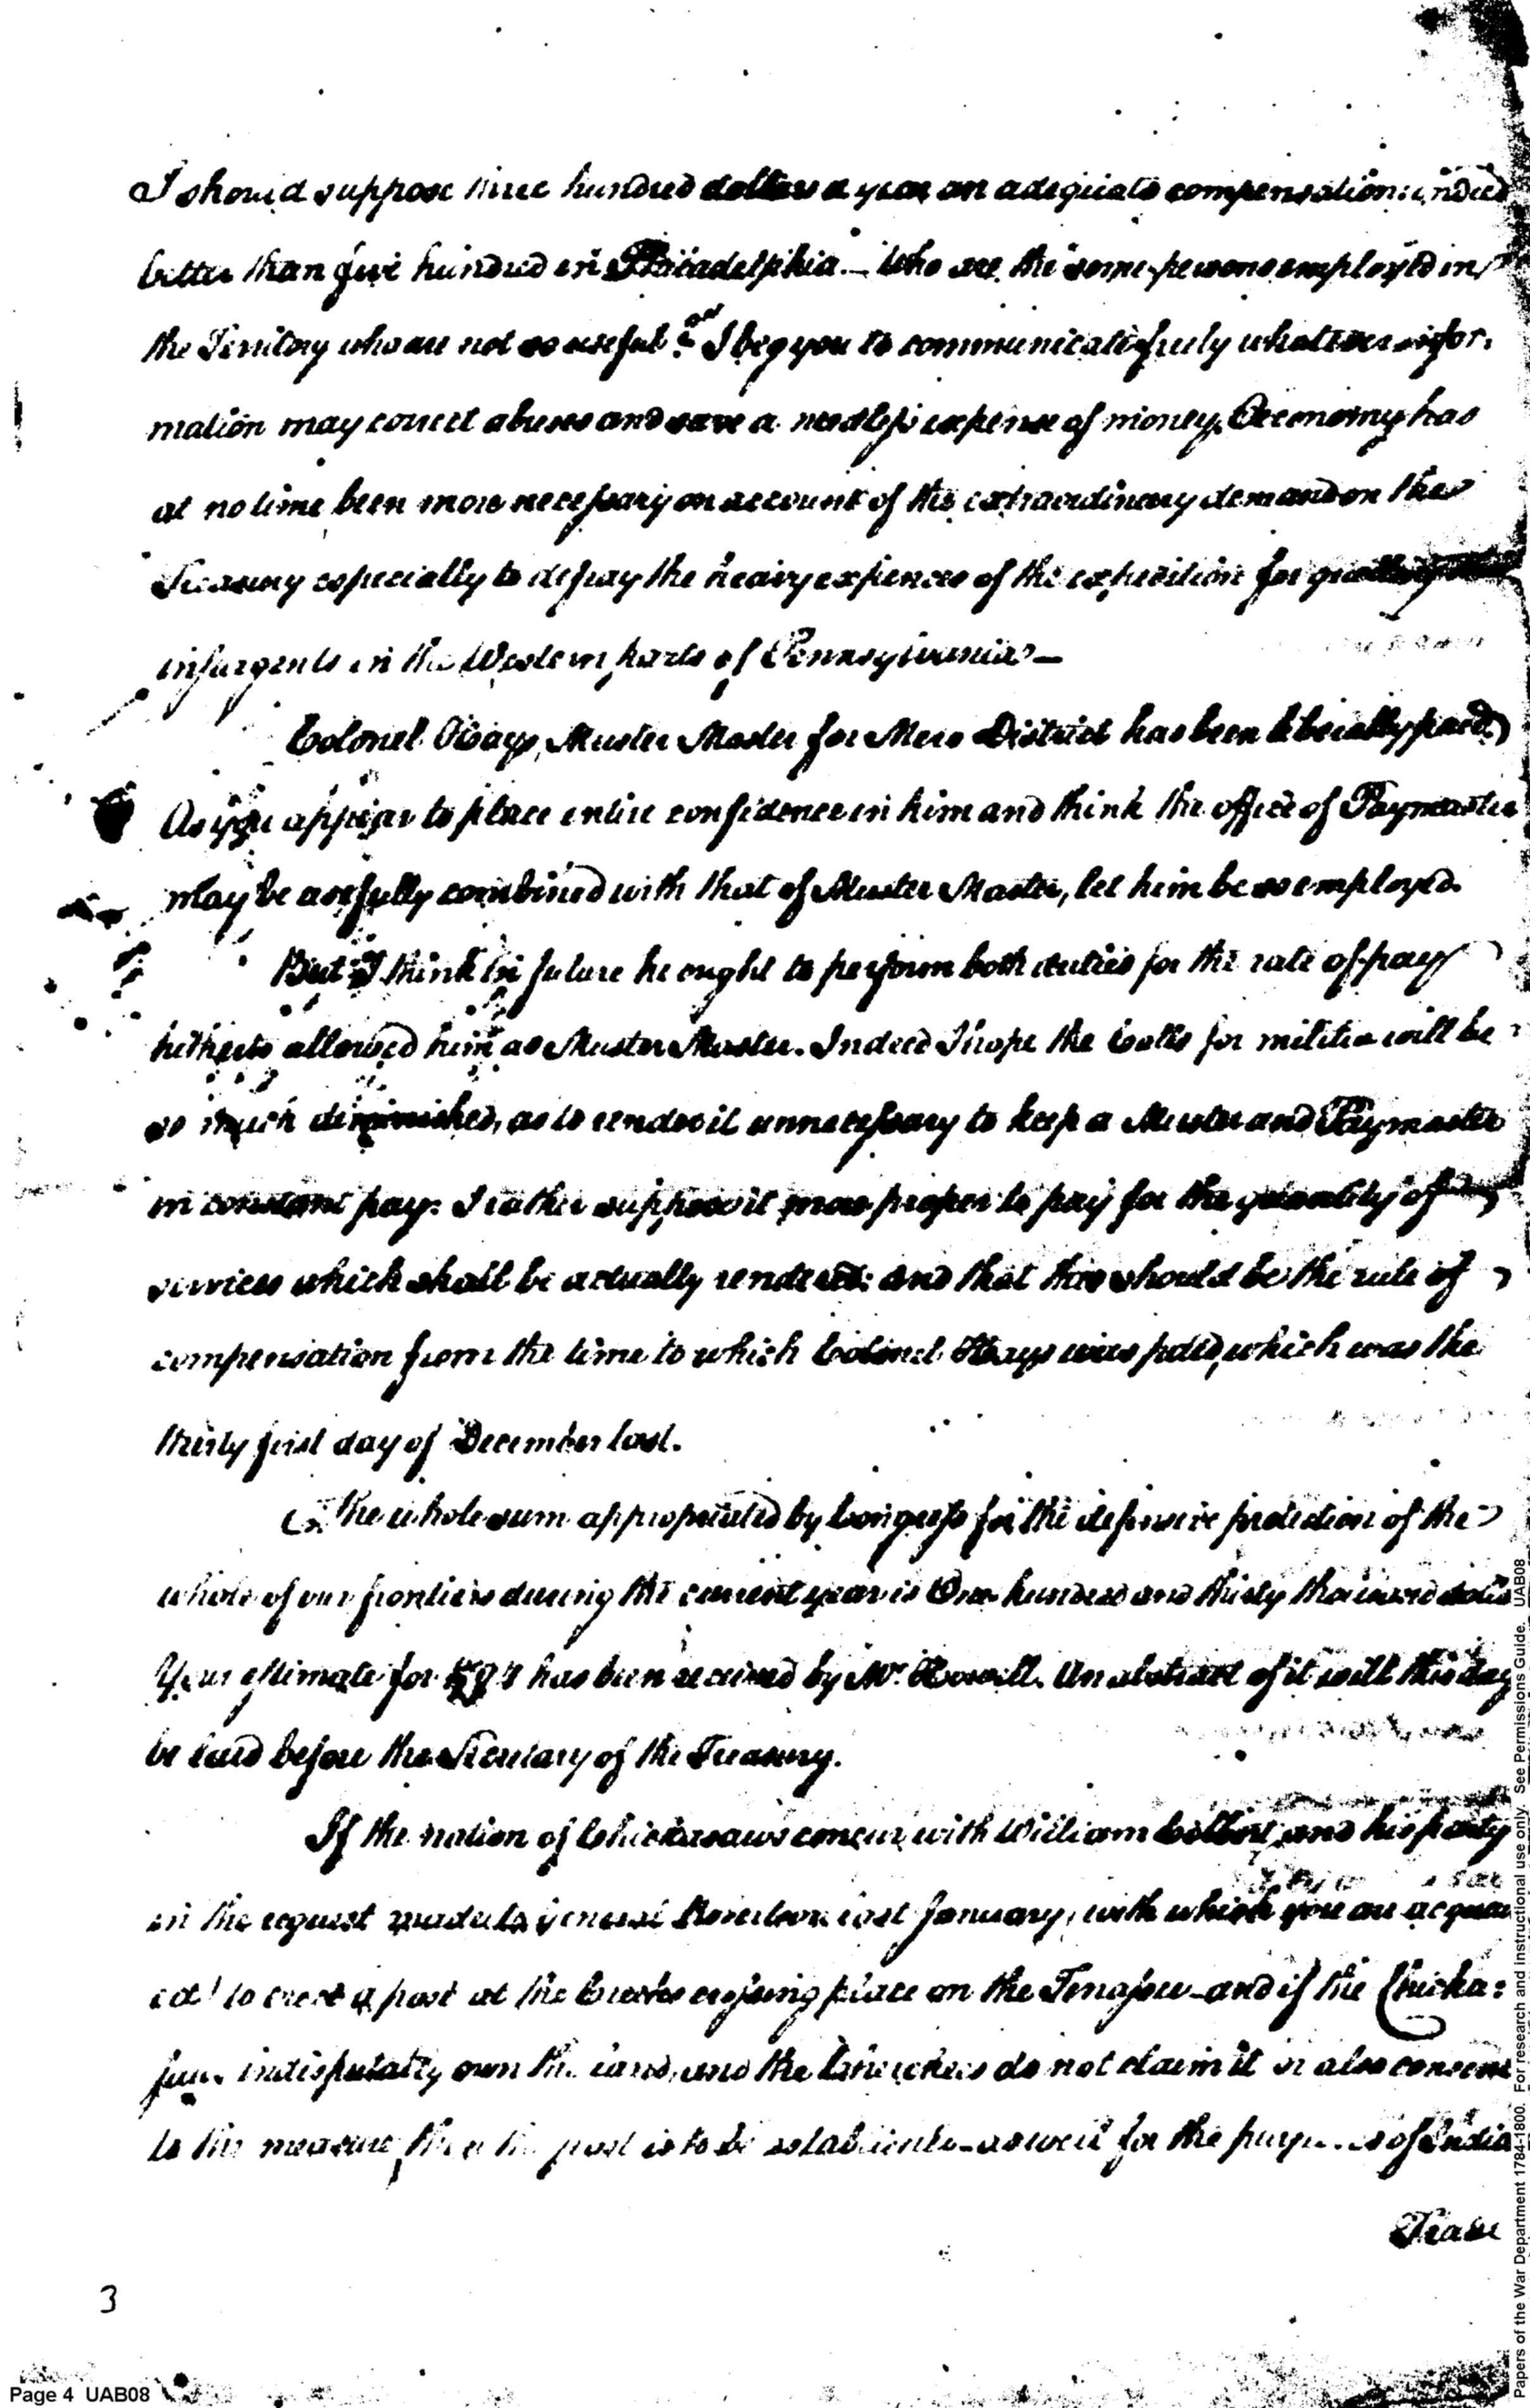 I should suppose three hundred dollars a year an adequate compensation: indeed
better than five hundred in Philadelphia. — Who are the some persons employed in
the Territory who are not so useful? I beg you to communicate freely whatever infor-
mation may correct abuses and save a needless expense of money. Oeconomy has
at no time been more necessary on account of the extraordinary demand on the
Treasury especially to defray the heavy expences of the expedition for quelling the
insurgents in the Western parts of Pennsylvania —
Colonel Hays, Muster Master for Mero District has been liberally paid.
As you appear to place entire confidence in him and think the office of Paymaster
may be usefully combined with that of Muster Master, let him be so employed.
But I think in future he ought to perform both duties for the rate of pay
hitherto allowed him as Muster Master. Indeed I hope the calls for militia will be
so much diminished, as to render it unnecessary to keep a Muster and Paymaster
in constant pay: I rather suppose it more proper to pay for the quantity of
services which shall be actually rendered: and that this should be the rule of
compensation from the time to which Colonel Hays was paid, which was the
thirty first day of December last.
The whole sum appropriated by Congress for the defensive protection of the
whole of our frontiers during the current year is One hundred and thirty thousand dolls
Your estimate for has been received by Mr. Howell. An abstract of it will this day
be laid before the Secretary of the Treasury.
If the nation of Chickasaws concur with William Colbert and his party
in the request made to General Robertson last January, with which you are acquaint
ed to erect a post at the Creeks crossing place on the Tenassee - and if the Chicka:
saws indisputably own the land, and the Cherokees do not claim it or also consent
to the measure, then the post is to be established - as well for the purposes of India
Trade
3
Page 4 UAB08
Papers of the War Department 1784-1800. For research and instructional use only. See Permissions Guide. UAB08